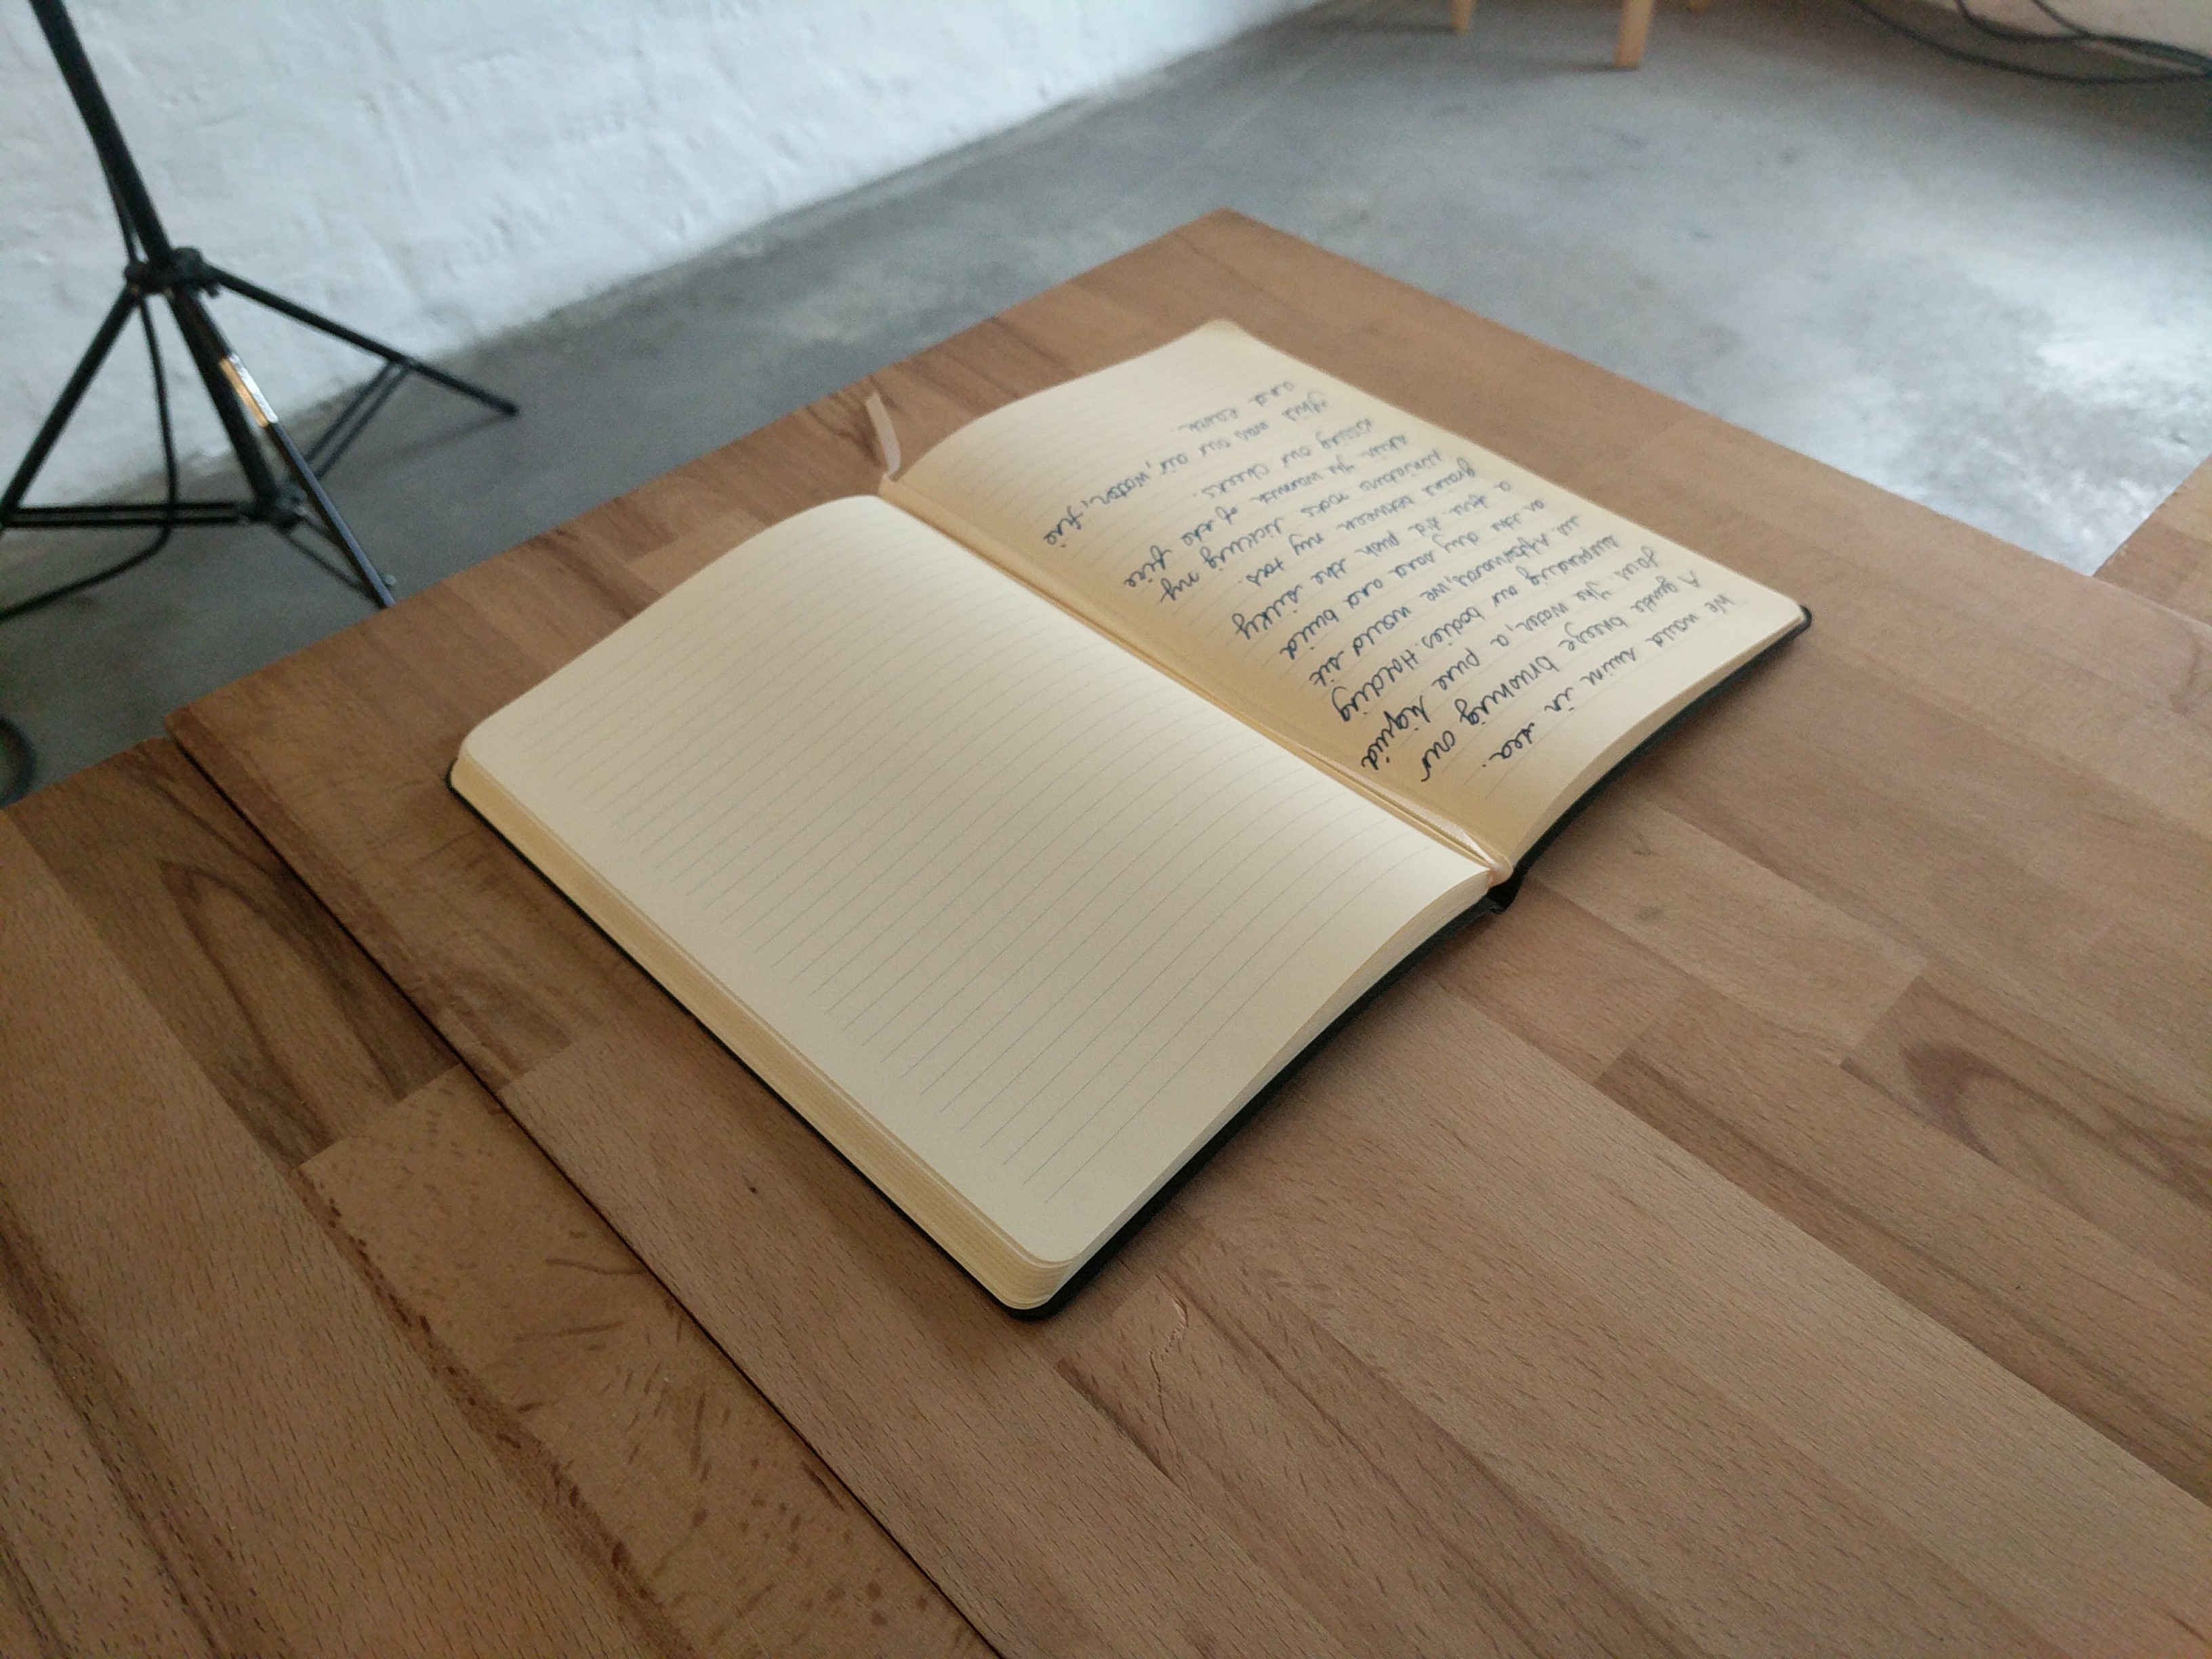 We would swim in sea.
A gentle breeze brushing our
faces. The water, a pure liquid
suspending our bodies. Holding
us. Afterwards, we would sit
on the dry sand and build
a fire. I'd push the silky
grains between my toes.
rocks licking my
skin. The warmth of the fire
kissing our cheeks.
This was our air, water, fire
and earth.